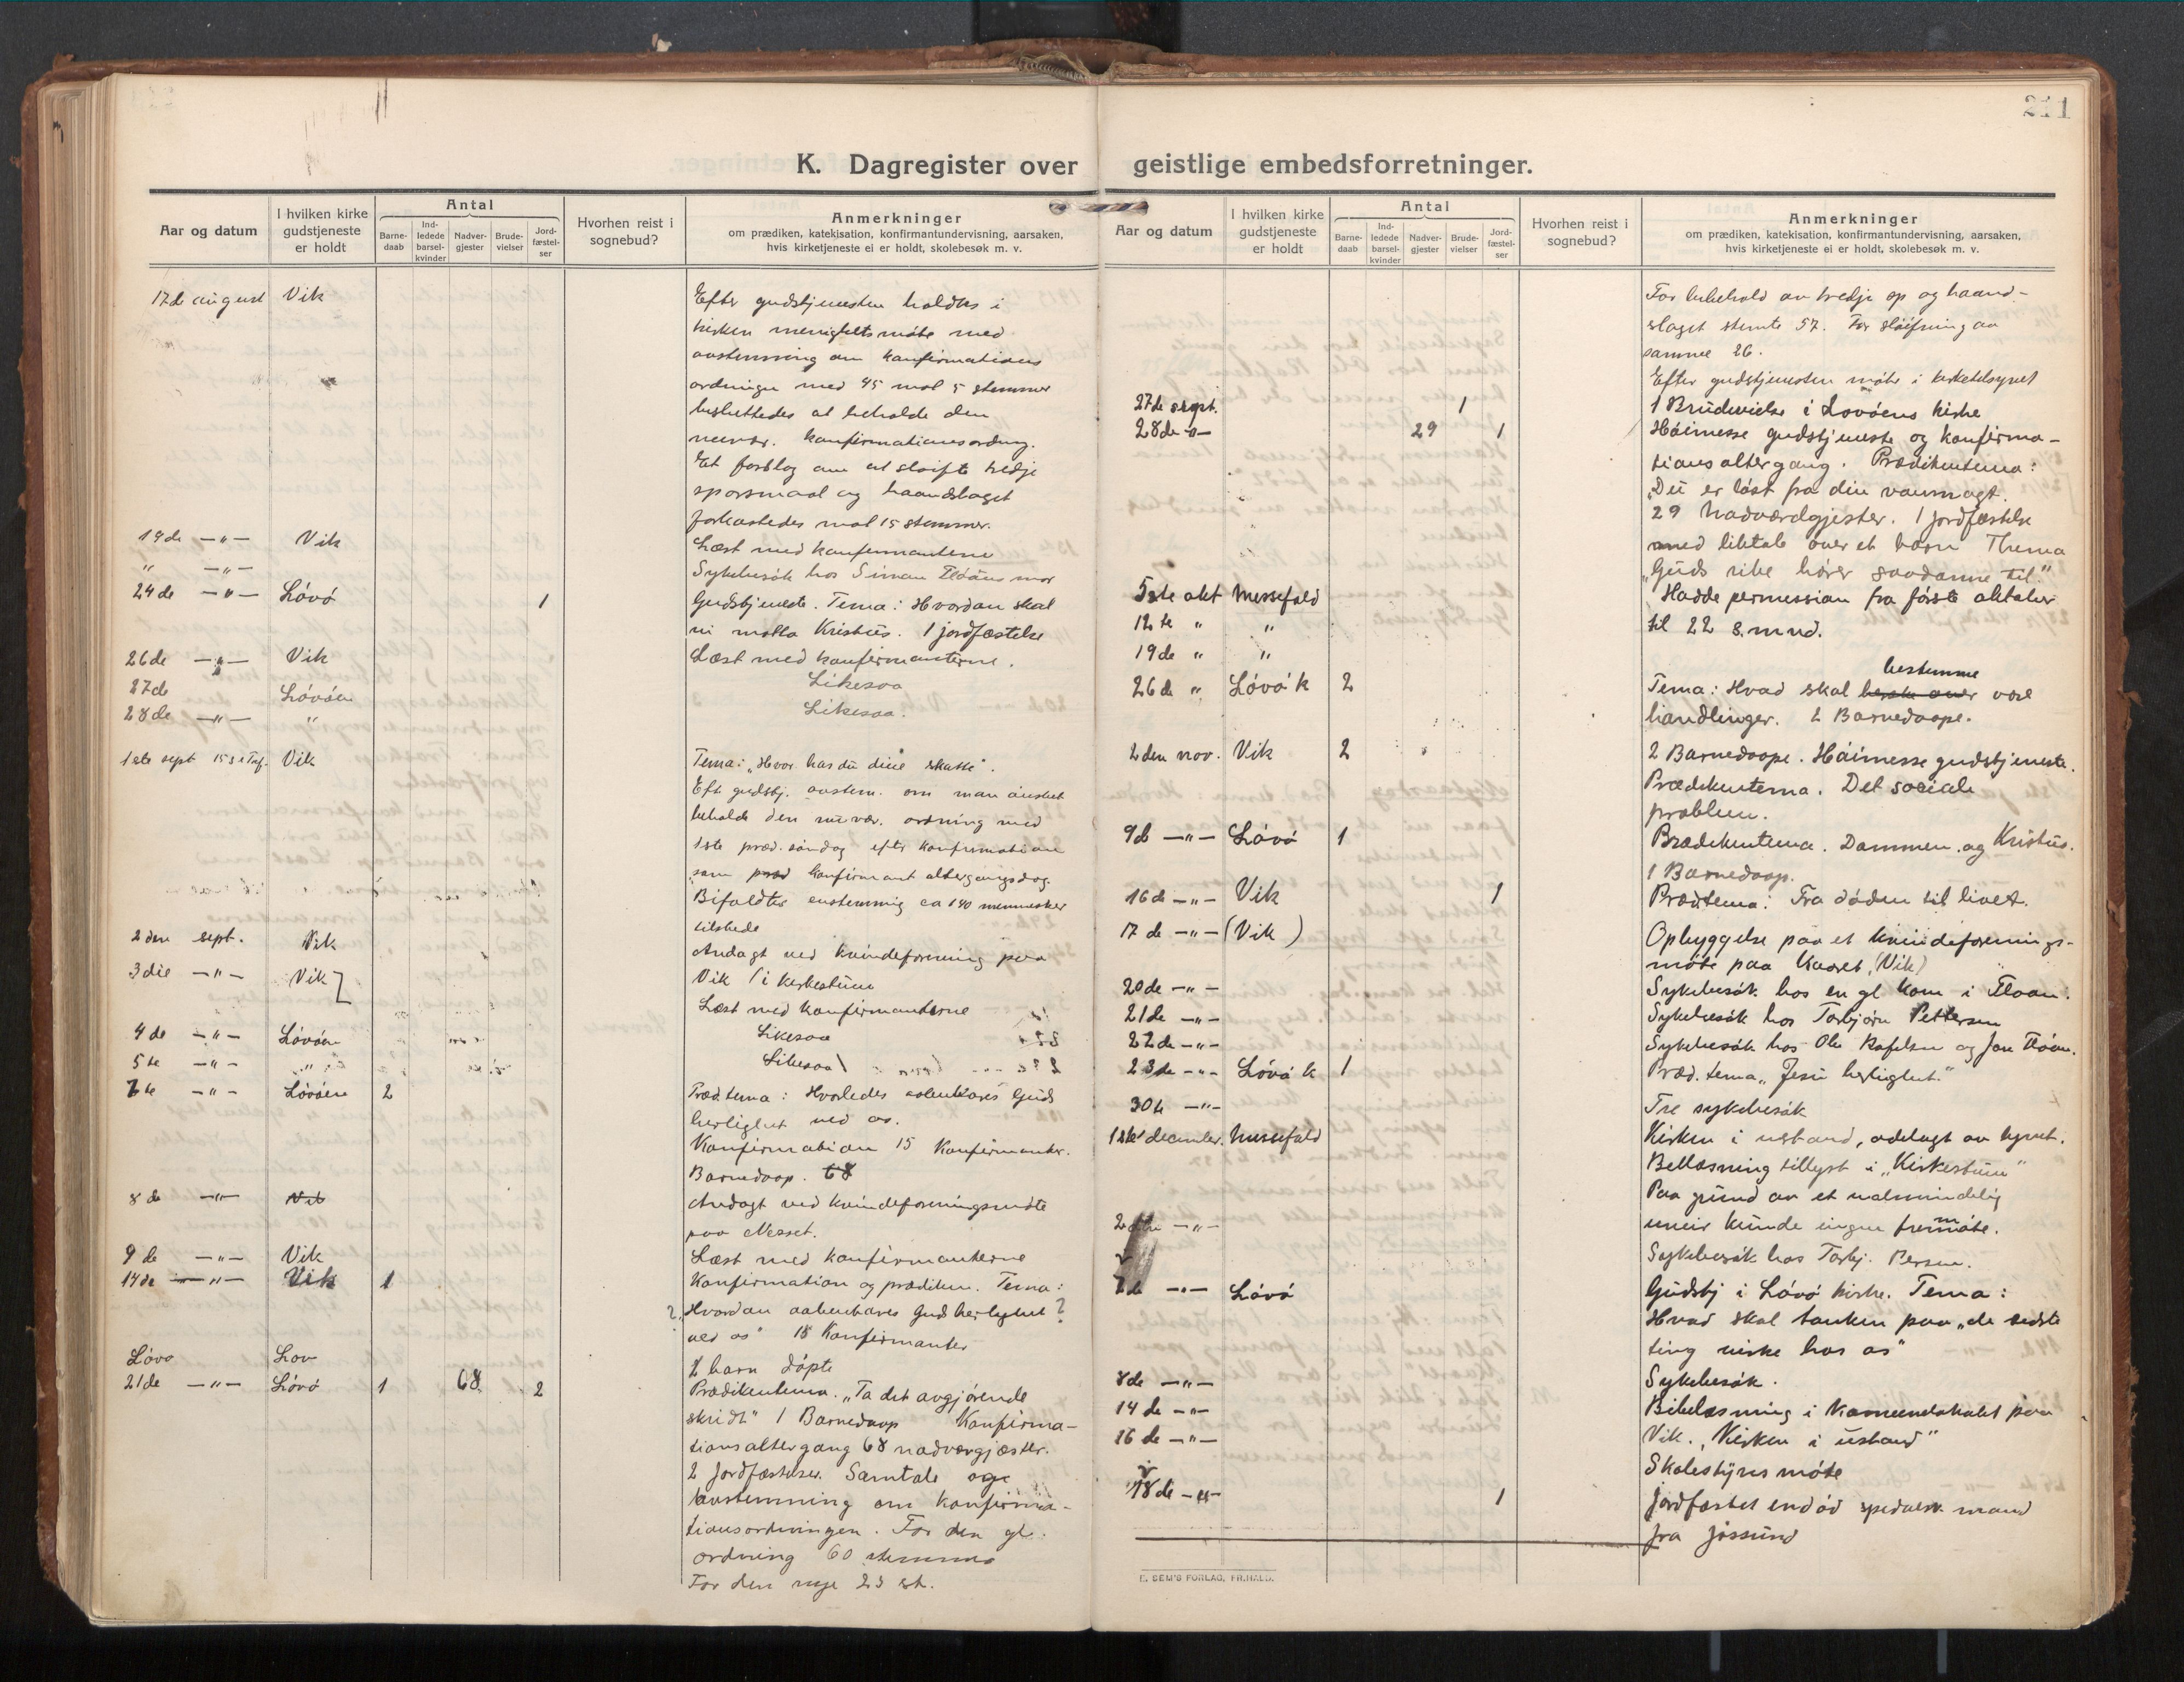 211
K. Dagregister over geistlige embedsforretninger.
Aar og datum
I hvilken kirke gudstjeneste er holdt
Antal
Barne-daab
Ind-ledede barsel-kvinder
Nadver-gjester
Brude-vielser
Jord-fæstel-ser
Hvorhen reist i sognebud?
Anmerkninger
om prædiken, katekisation, konfirmantundervisning, aarsaken,
hvis kirketjeneste ei er holdt, skolebesøk m. v.
17de august Vik Efter gudstjenesten holdtes i
kirken menighetsmøte med
avstemning om konfirmations
ordningen med 45 mot 5 stemmer
besluttedes at beholde den
nuvær. konfirmationsordng.
Et forslag om at sløife tredje
spørsmaal og haandslaget
forkastedes mot 15 stemmer.
19de —"— Vik Læst med konfirmantene
" —"— Sykebesøk hos Simon Fløans mor
24de —"— Løvø 1 Gudstjeneste. Tema: Hvordan skal
vi motta Kristus. 1 jordfæstelse
26de —"— Vik Læst med konfirmanterne.
27de Løvøen Likesaa
28de —"— " Likesaa.
1ste sept 15 s e Tref. Vik Tema: „Hvor har du dine skatte".
Eft gudstj. avstem. om man ønsket
beholde den nuvær. ordning med
1ste præd. søndag efter konfirmation
som konfirmant altergangsdag.
Bifaldtes enstemmig ca 140 mennesker
tilstede
2den sept. Vik Andagt ved kvindeforening paa
Vik i kirkestuen
3die —"— Vik Læst med konfirmanterne
4de —"— Løvøen Likesaa
5te —"— " Likesaa
7de —"— Løvøen 2 Præd. tema: Hvorledes aabenbares Guds
herlighet ved os.
Konfirmation 15 Konfirmanter.
Barnedaap. 68
8de —"— Vik Andagt ved kvindeforeningsmøte
paa Nesset.
9de —"— Vik Læst med konfirmanterne
14de —"— Vik 1 Konfirmation og prædiken. Tema:
? „Hvordan aabenbares Guds herlighet ?
ved os" 18 Konfirmanter
Løvø Lov 1 barn døpt
21de —"— Løvø 1 68 2 Prædikentema. „Ta det avgjørende
skridt" 1 Barnedaap Konfirma-
tionsaltergang 68 nadvergjæster.
2 Jordfæstelser. Samtale og
avstemning om konfirma-
tionsordningen. For den gl.
ordning 60 stemmer
For den nye 23 st.
Aar og datum
I hvilken kirke gudstjeneste er holdt
Antal
Barne-daab
Ind-ledede barsel-kvinder
Nadver-gjester
Brude-vielser
Jord-fæstel-ser
Hvorhen reist i sognebud?
Anmerkninger
om prædiken, katekisation, konfirmantundervisning, aarsaken,
hvis kirketjeneste ei er holdt, skolebesøk m. v.
For bibehold av tredje sp og haand-
slaget stemte 57. For sløifning av
samme 26.
Efter gudstjenesten møte i kirketilsynet
27de sept. 1 1 Brudevielse i Løvøens kirke
28de -"— 29 1 Høimesse gudstjeneste og konfirma-
tionsaltergang. Prædikentema:
„Du er løst fra din vanmagt.
29 Nadværdgjester. 1 jordfæstelse
med liktale over et barn Thema
„Guds rike hører saadanne til."
5te okt Messefald Hadde permission fra første oktober
12te " " til 22 s. mnd.
19de " "
26de " Løvø k 2 Tema: Hvad skal bestemme vore
handlinger. 2 Barnedaape.
2den nov. Vik 2 2 Barnedaape. Høimesse gudstjeneste.
Prædikentema. Det sociale
problem.
9de —"— Løvø 1 Prædikentema. Dommen og Kristus.
1 Barnedaap.
16de —"— Vik 1 Prædtema: Fra døden til livet.
17de —"— (Vik) Opbyggelse paa et kvindeforenings-
møte paa Vik
20de —"— Sykebesøk hos en gl kone i Floan.
21de —"— Sykebesøk hos Torbjørn Pettersen
22de —"— Sykebesøk hos Ole Rafelsen og Jon Floan.
23de —"— Løvø k 1 Præd. tema „Jesu herlighet."
30te —"— Tre sykebesøk
1ste december. Messefald Kirken i ustand, ødelagt av lynet.
Bellæsning tillyst i „Kirkestuen"
Paa grund av et ualmindelig
uveir kunde ingen fremmøte.
2den —"— Sykebesøk hos Torbj. Persen.
7de —"— Løvø Gudstj i Løvø kirke. Tema:
Hvad skal tanken paa „de sidste
ting virke hos os"
8de —"— Sykebesøk.
14de —"— Bibelæsning i Kommunelokalet paa
Vik. „Kirken i ustand"
16de —"— Skolestyresmøte
18de —"— 1 Jordfæstet en død spedalsk mand
fra Jøssund
E. SEM'S FORLAG, FR.HALD.